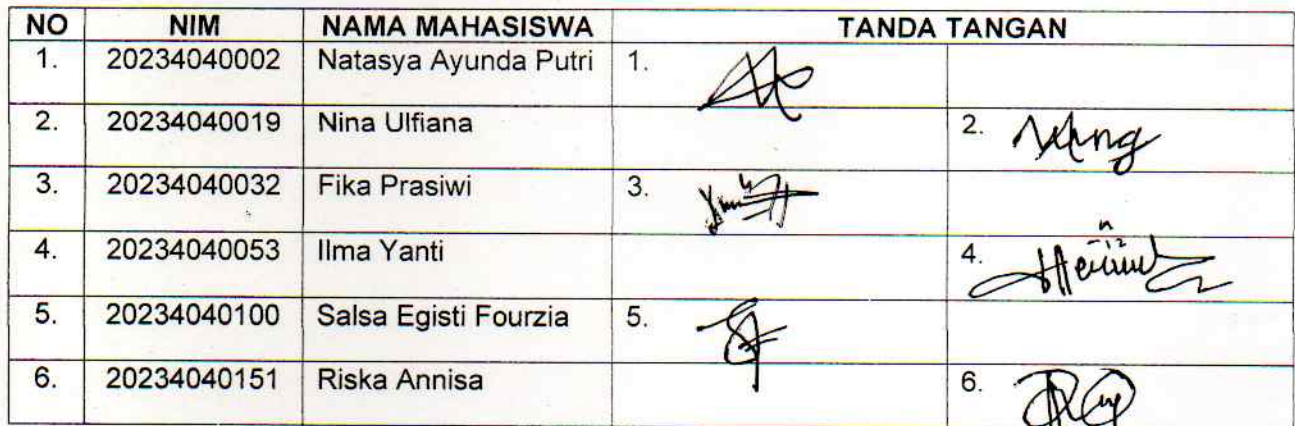 NO NIM NAMA MAHASISWA TANDA TANGAN
1. 20234040002 Natasya Ayunda Putri 1.
2. 20234040019 Nina Ulfiana 2.
3. 20234040032 Fika Prasiwi 3.
4. 20234040053 Ilma Yanti 4.
5. 20234040100 Salsa Egisti Fourzia 5.
6. 20234040151 Riska Annisa 6.